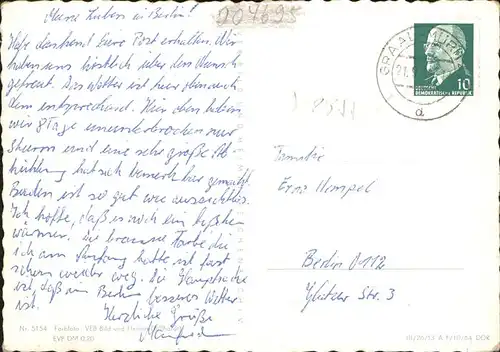 Meine Lieben in Berlin!
Habe dankend Eure Post erhalten. Wir
haben uns köstlich über den Wunsch
gefreut. Das Wetter ist hier dennoch
dem entsprechend. Hier oben haben
wir 8 Tage ununterbrochen nur
Sturm und eine sehr große Ab-
kühlung hat sich bemerkbar gemacht.
Baden ist so gut wie aussichtslos.
Ich hoffe, daß es noch ein bißchen
wärmer. Die braune Farbe die
ich am Anfang hatte ist fast
schon wieder weg. Die Hauptsache
ist, daß in Berlin besseres Wetter
ist.
Herzliche Grüße
Manfred
Nr. 5154
EVP DM 0,20
204695
GRAAL-MÜRITZ
21.
a
10
DEUTSCHE
DEMOKRATISCHE REPUBLIK
Familie
Erns Hempel
Berlin 0112
Str. 3